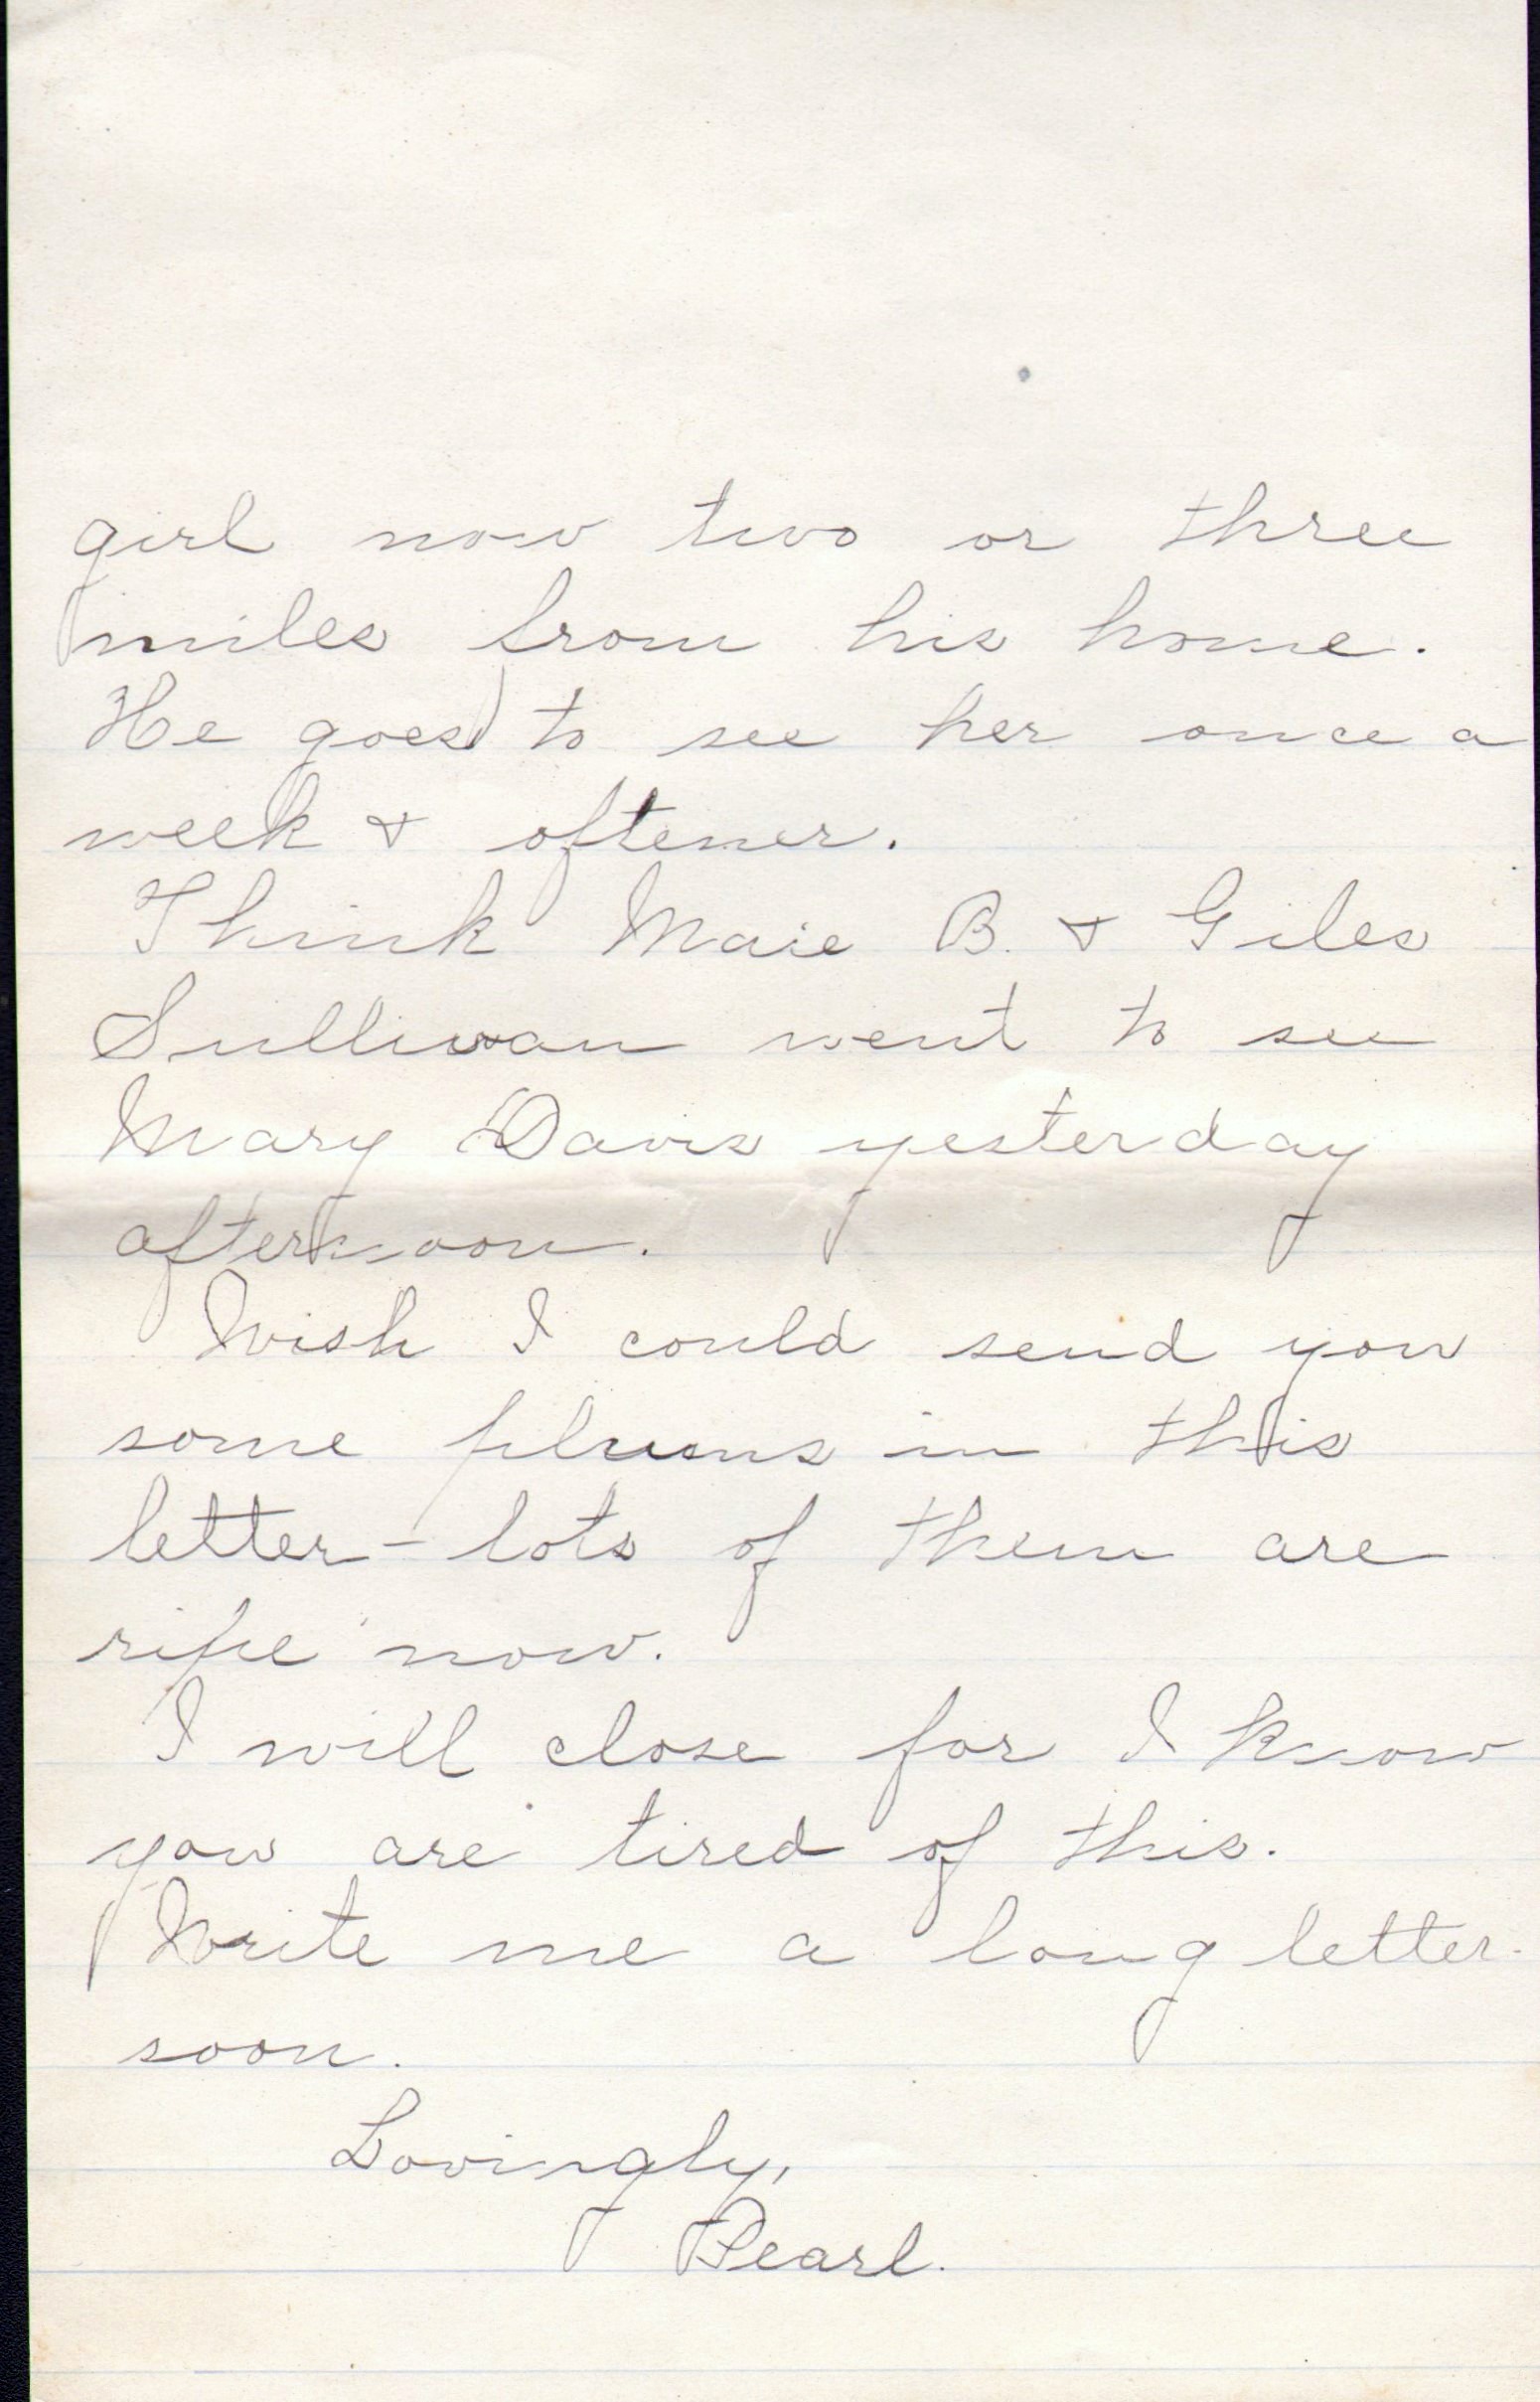 girl now two or three
miles from his home.
He goes to see her once a
week & oftener.
Think Maie B. & Giles
Sullivan went to see
Mary Davis yesterday
afternoon.
Wish I could send you
some plums in this
letter - lots of them are
ripe now.
I will close for I know
you are tired of this.
Write me a long letter
soon.
Lovingly,
Pearl.